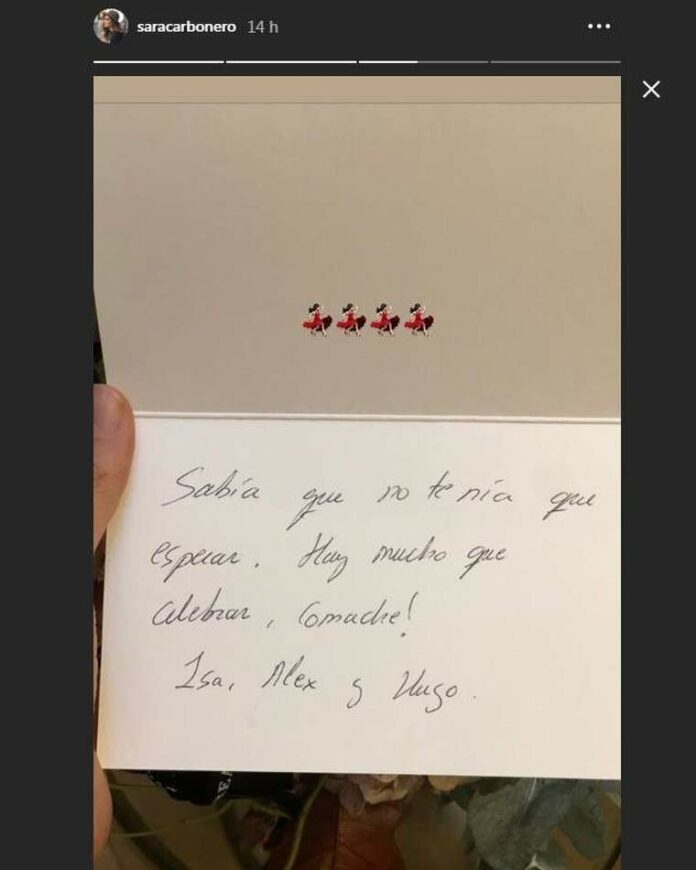 saracarbonero 14 h
Sabía que no tenía que
esperar. Hay mucho que
celebrar, Comadre!
Isa, Alex y Hugo.